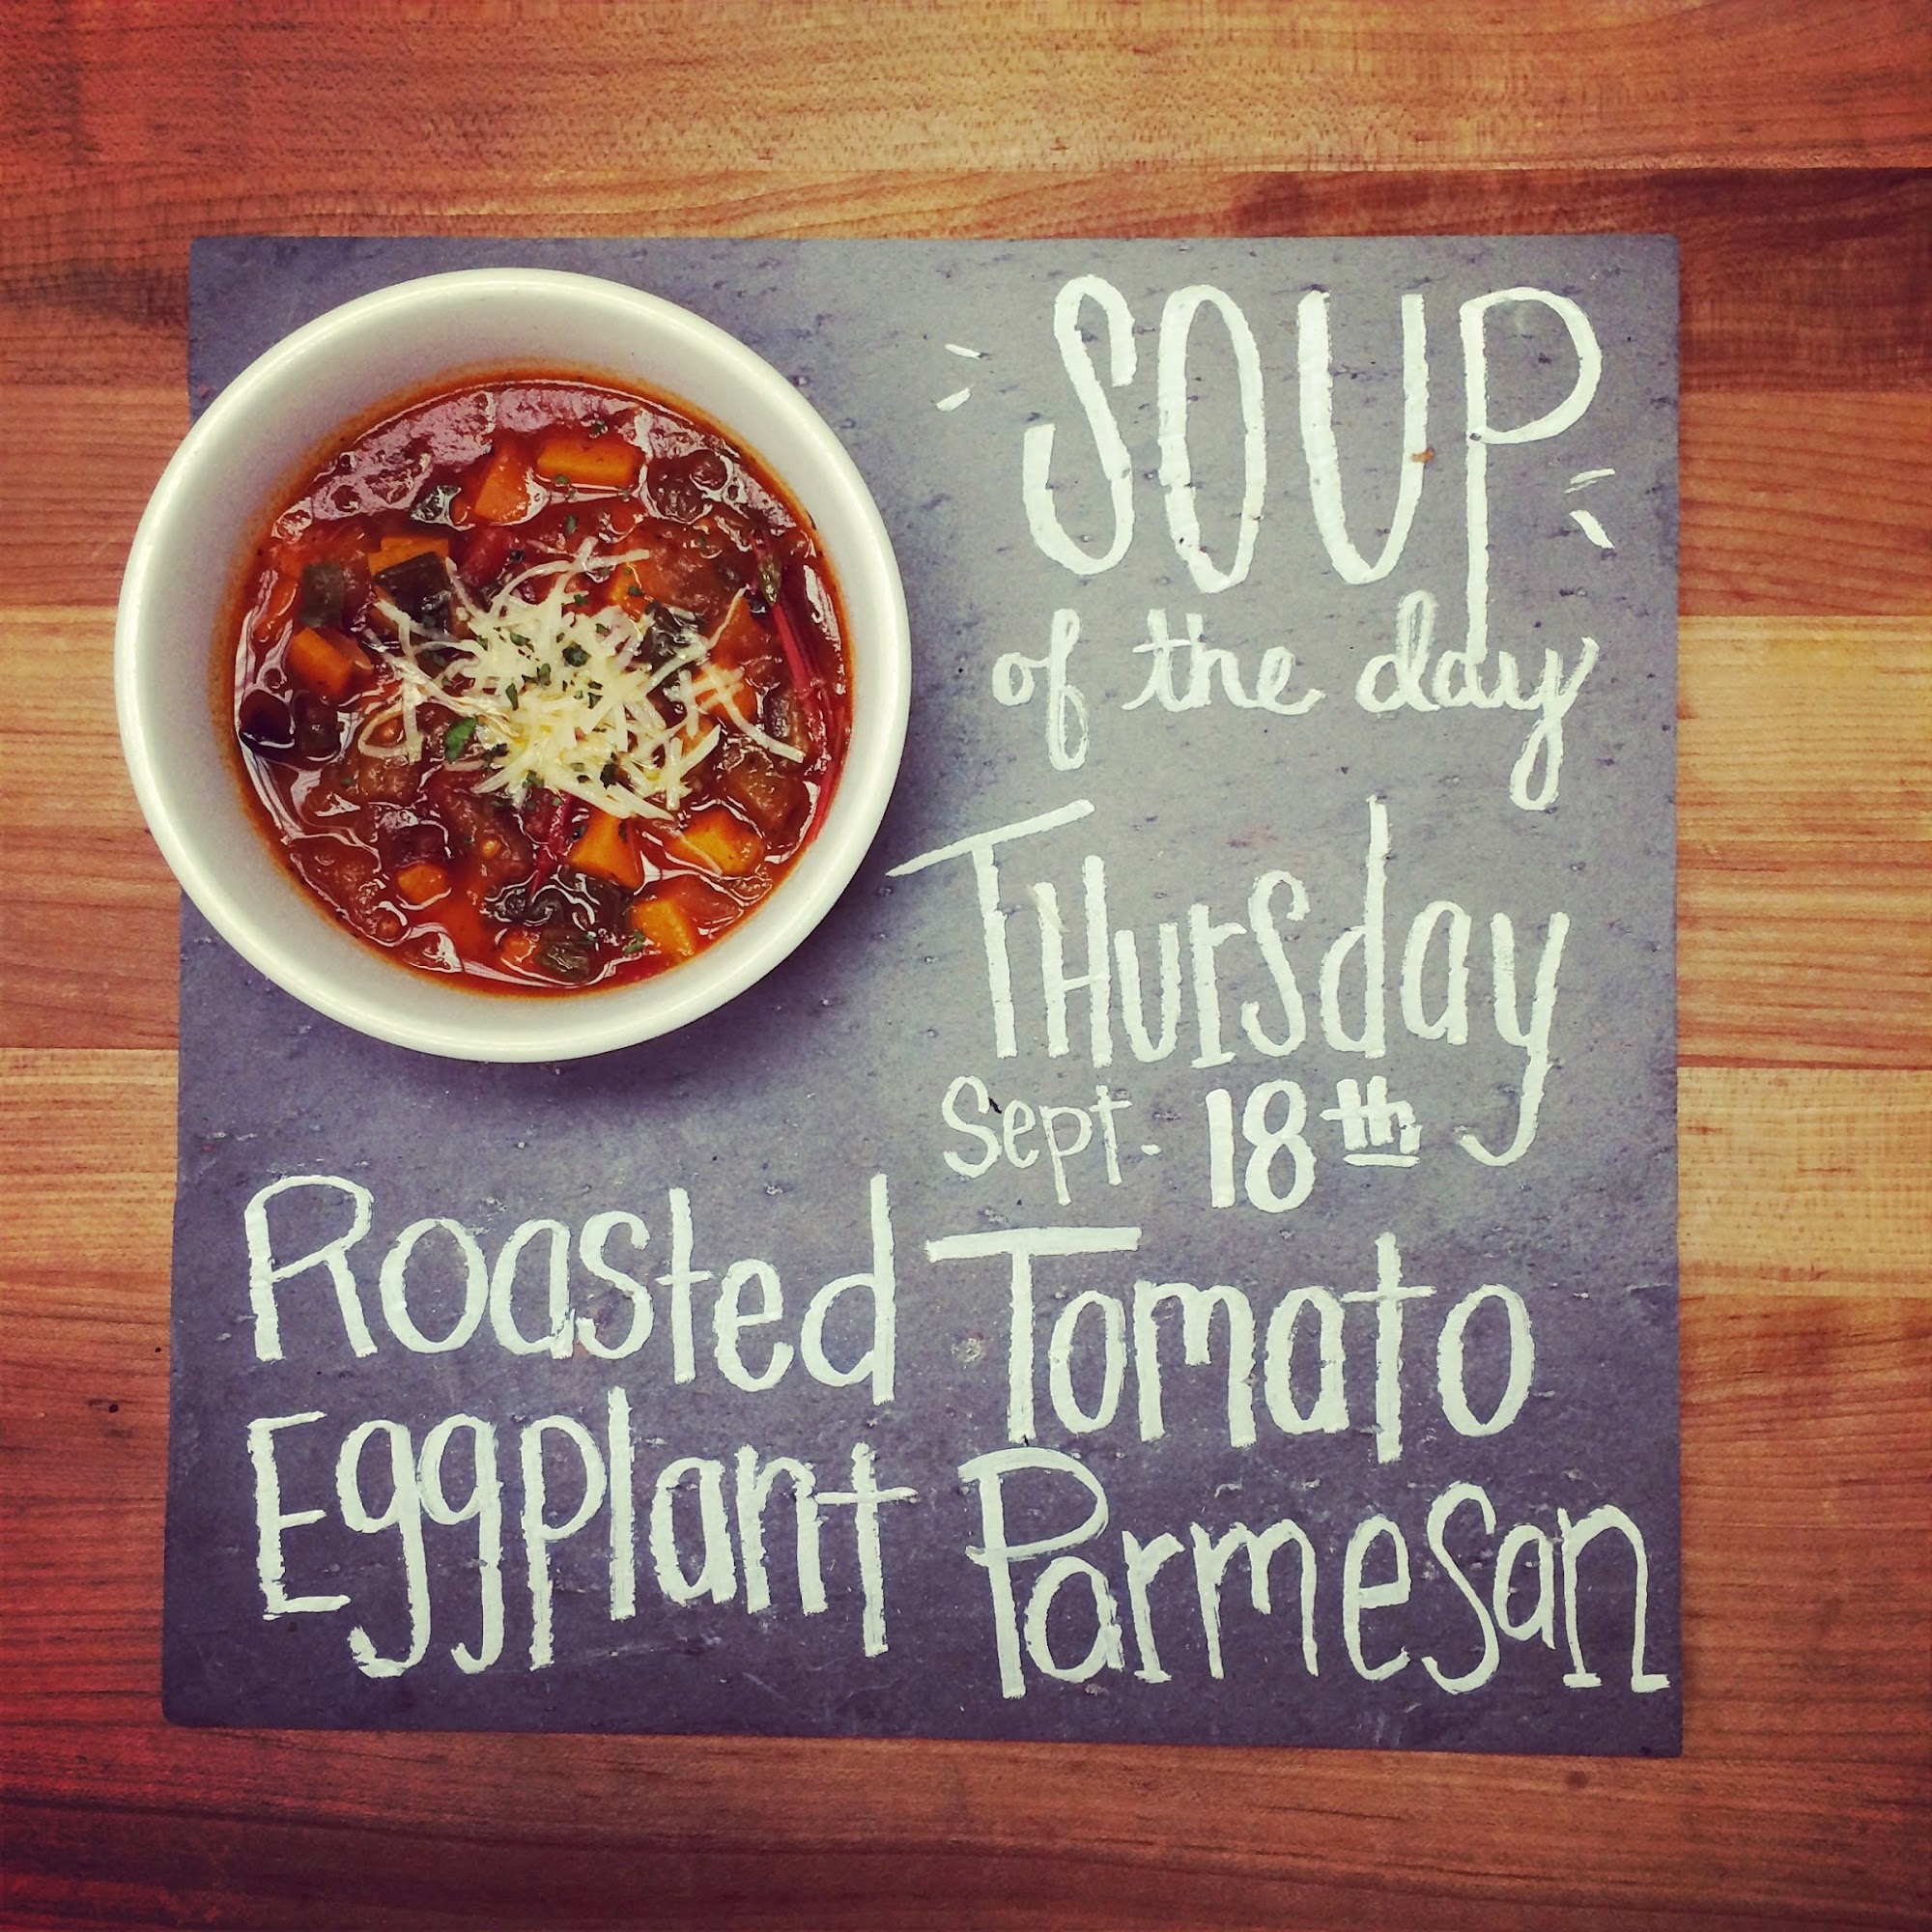 SOUP
of the day
THursday
Sept. 18th
Roasted Tomato
Eggplant Parmesan